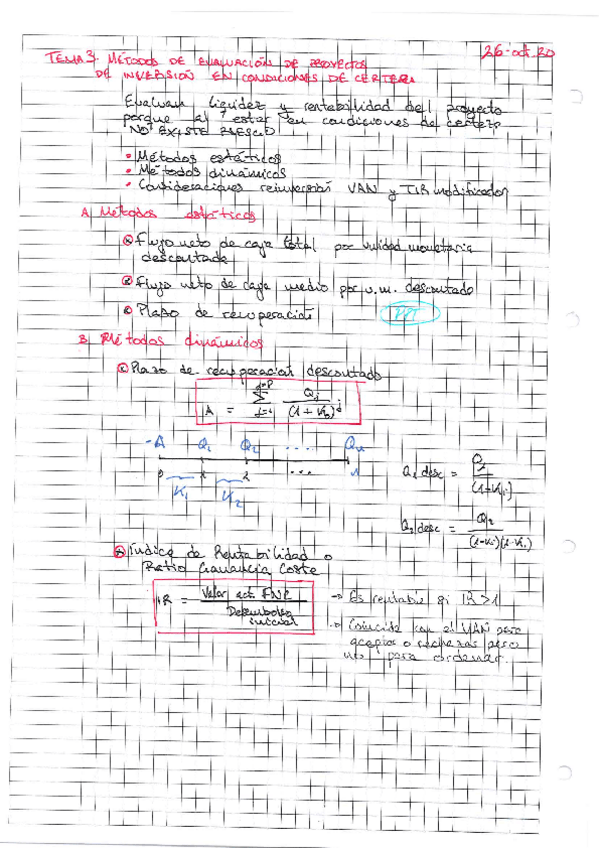 26-oct-20
TEMA 3. MÉTODOS DE EVALUACIÓN DE PROYECTOS
DE INVERSIÓN EN CONDICIONES DE CERTEZA
Evalúan liquidez y rentabilidad del proyecto
porque al estar en condiciones de certeza
NO EXISTE RIESGO
• Métodos estáticos
• Métodos dinámicos
• Consideraciones reinversión VAN y TIR modificados
A. Métodos estáticos
Flujo neto de caja total por unidad monetaria
descontada
Flujo neto de caja medio por u.m. descontado
Plazo de recuperación
PPT
B. Métodos dinámicos
Plazo de recuperación descontado
A = Σ Qj / (1 + K)^j
-A Q1 Q2 .... Qn
0 1 2 ... n
K1 K2
Q1 desc = Q1 / (1+K1)
Q2 desc =
Índice de Rentabilidad o
Ratio Ganancia Coste
IR = Valor act. FNC / Desembolso inicial
→ Es rentable si IR > 1
→ Coincide con el VAN para
aceptar o rechazar pero
no para ordenar.